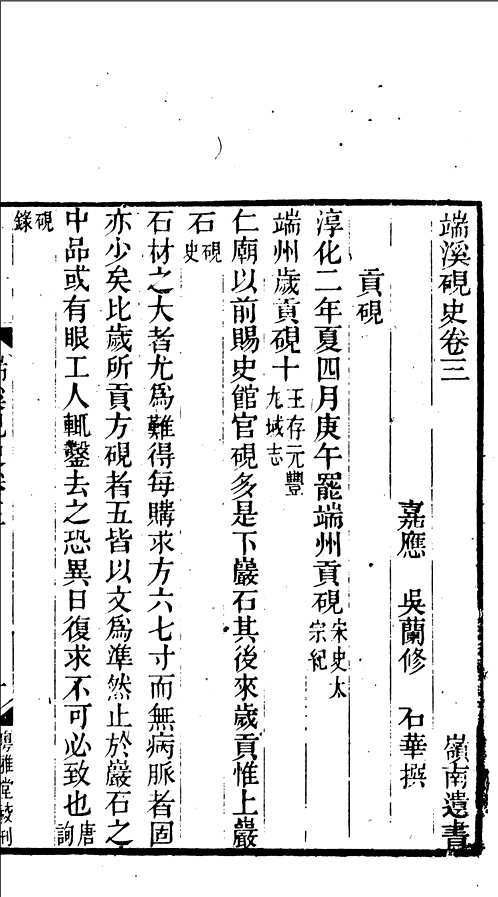 端溪硯史卷三　嶺南遺書
嘉應　吳蘭修　石華撰
貢硯
淳化二年夏四月庚午罷端州貢硯宋史太宗紀
端州歲貢硯十王存元豐九域志
仁廟以前賜史館官硯多是下巖石其後來歲貢惟上巖
石硯史
石材之大者尤爲難得每購求方六七寸而無病脈者固
亦少矣比歲所貢方硯者五皆以文爲準然止於巖石之
中品或有眼工人輒鑿去之恐異日復求不可必致也唐詢
硯錄
粵雅堂校刊